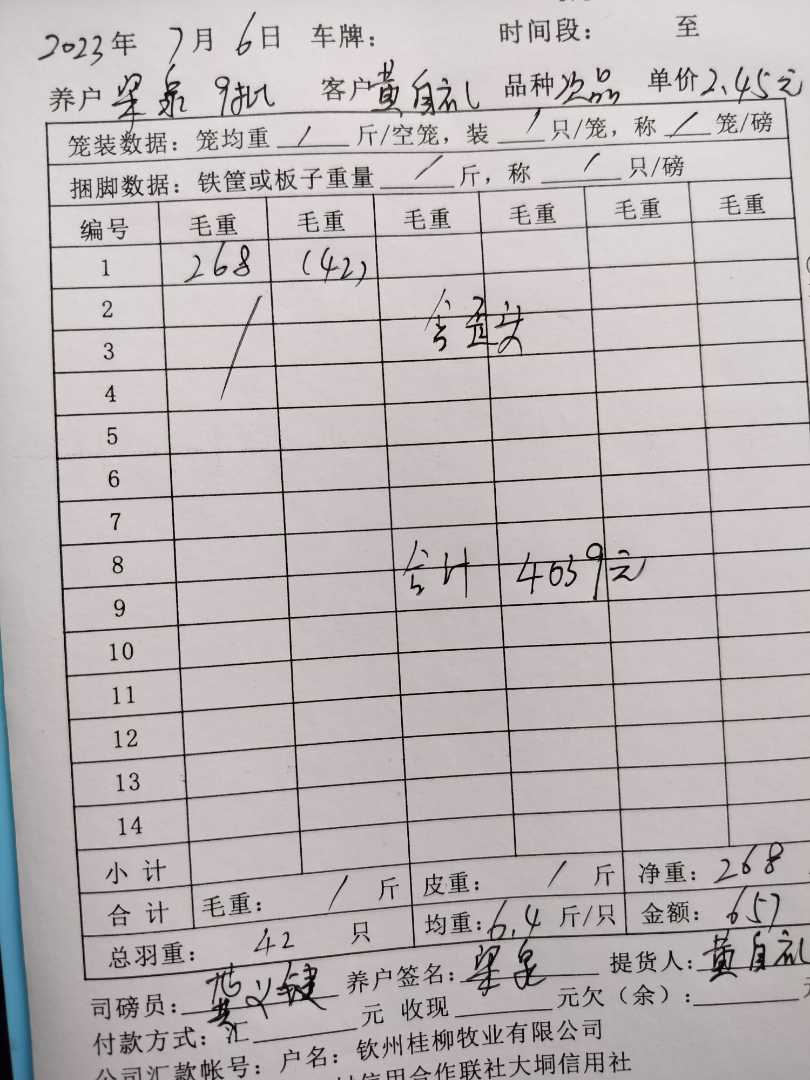 2023年 7月 6日 车牌： 时间段： 至
养户 梁泉 9批 客户 黄自礼 品种 次品 单价 2.45元
笼装数据：笼均重 / 斤/空笼，装 / 只/笼，称 / 笼/磅
捆脚数据：铁筐或板子重量 / 斤，称 / 只/磅
编号 毛重 毛重 毛重 毛重 毛重 毛重
1 268 (42)
2
3 含歪头
4
5
6
7
8 合计 4039元
9
10
11
12
13
14
小计
合计 毛重： / 斤 皮重： / 斤 净重：268
总羽重： 42 只 均重：6.4 斤/只 金额：657
司磅员： 养户签名：梁泉 提货人：黄自礼
付款方式：汇 元 收现 元欠（余）： 元
公司汇款帐号：户名：钦州桂柳牧业有限公司
信用合作联社大垌信用社